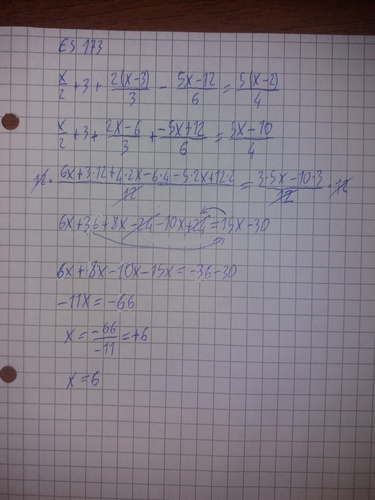 ES 173
x/2 + 3 + 2(x-3)/3 - 5x-12/6 = 5(x-2)/4
x/2 + 3 + 2x-6/3 + -5x+12/6 = 5x-10/4
12 · 6x+3·12+4·2x-6·4-5·2x+12·2/12 = 3·5x-10·3/12 · 12
6x+36+8x-24-10x+24=15x-30
6x+8x-10x-15x=-36-30
-11x=-66
x = -66/-11 = +6
x = 6